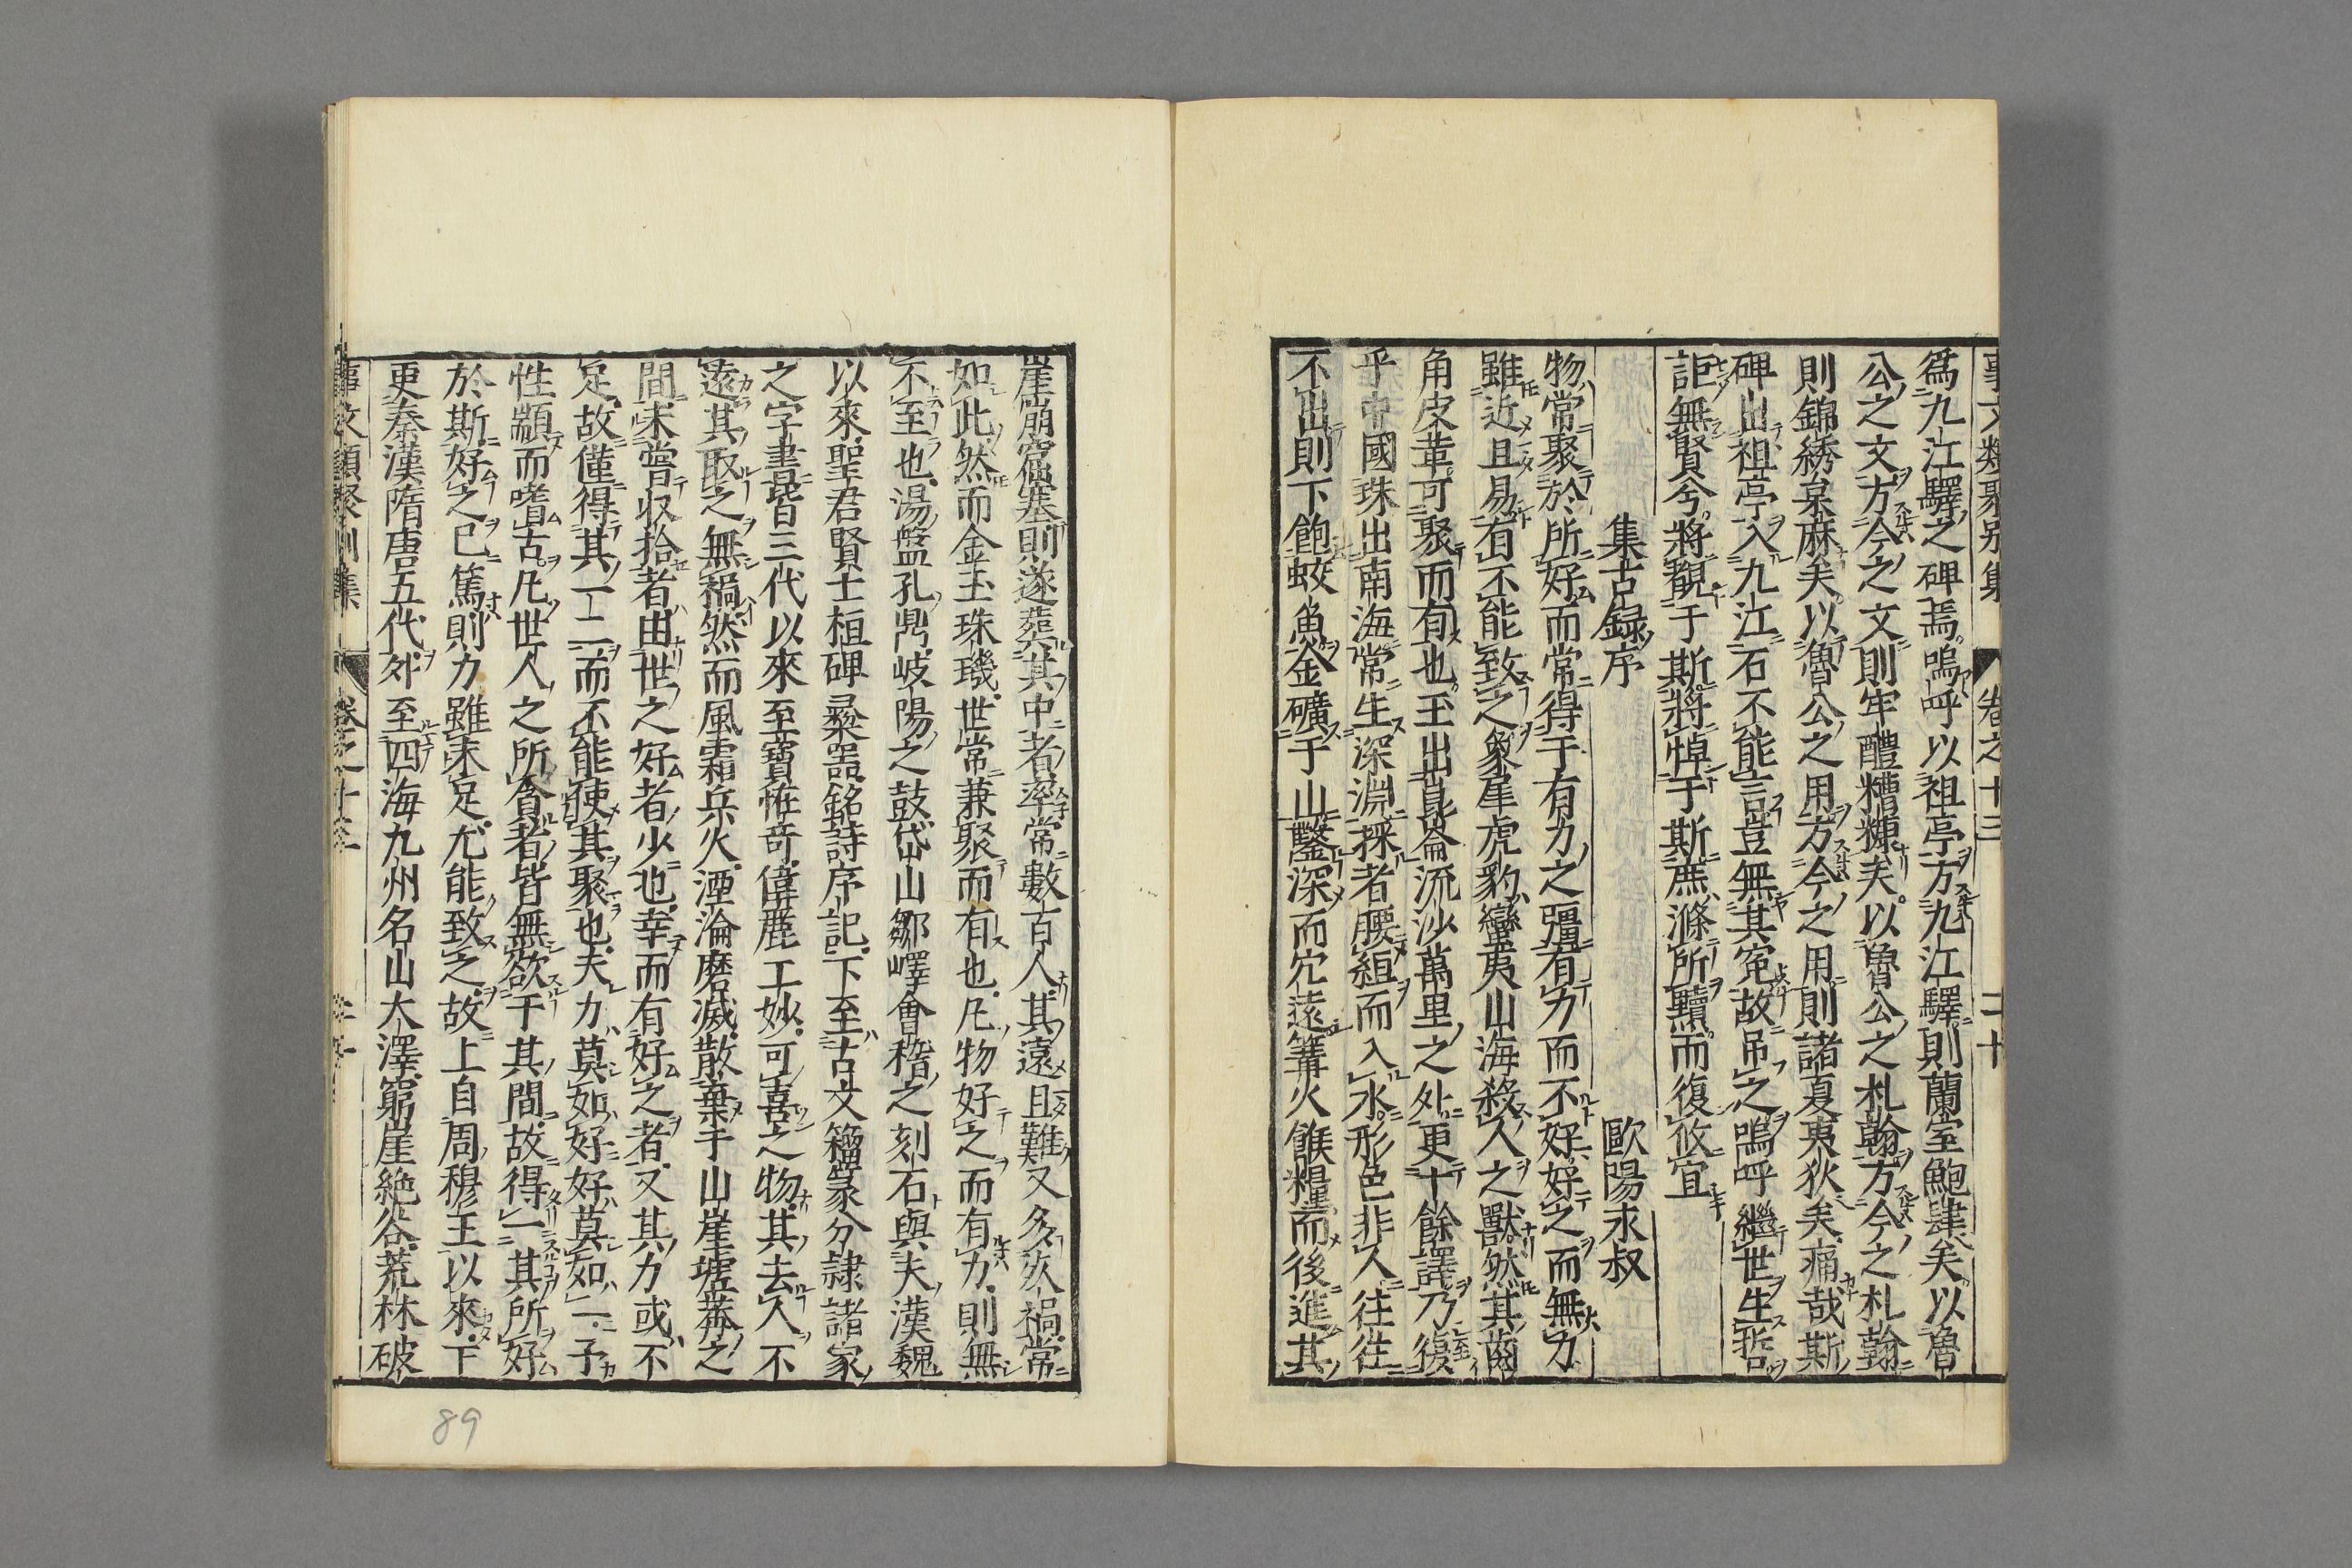 事文類聚別集 卷之十三 二十
爲九江驛之碑焉嗚呼以祖亭方九江驛則蘭室鮑肆矣以魯
公之文方今之文則牢醴糟糠矣以魯公之札翰方今之札翰
則錦綉枲麻矣以魯公之用方今之用則諸夏夷狄矣痛哉斯
碑出祖亭入九江石不能言豈無其寃故吊之嗚呼繼世生哲
詎無賢兮將覩于斯將悼于斯庶滌所黷而復攸宜
集古録序 歐陽永叔
物常聚於所好而常得于有力之彊有力而不好好之而無力
雖近且易有不能致之象犀虎豹蠻夷山海殺人之獸然其齒
角皮革可聚而有也玉出崑崙流沙萬里之外更十餘譯乃復
乎中國珠出南海常生深淵採者腰絙而入水形色非人往往
不出則下飽蛟魚金礦于山鑿深而穴遠篝火餱糧而後進其
崖崩窟塞則遂葬其中者率常數百人其遠且難又多災禍常
如此然而金玉珠璣世常兼聚而有也凡物好之而有力則無
不至也湯盤孔鼎岐陽之鼓岱山鄒嶧會稽之刻石與夫漢魏
以來聖君賢士桓碑彛器銘詩序記下至古文籀篆分隷諸家
之字書皆三代以來至寶恠奇偉麗工妙可喜之物其去人不
遠其取之無禍然而風霜兵火湮淪磨滅散棄于山崖墟莽之
間未嘗収拾者由世之好者少也幸而有好之者又其力或不
足故僅得其一二而不能使其聚也夫力莫如好好莫如一予
性顓而嗜古凡世人之所貪者皆無欲于其間故得一其所好
於斯好之已篤則力雖未足尤能致之故上自周穆王以來下
更秦漢隋唐五代外至四海九州名山大澤窮崖絶谷荒林破
事文類聚別集 卷之十三
89